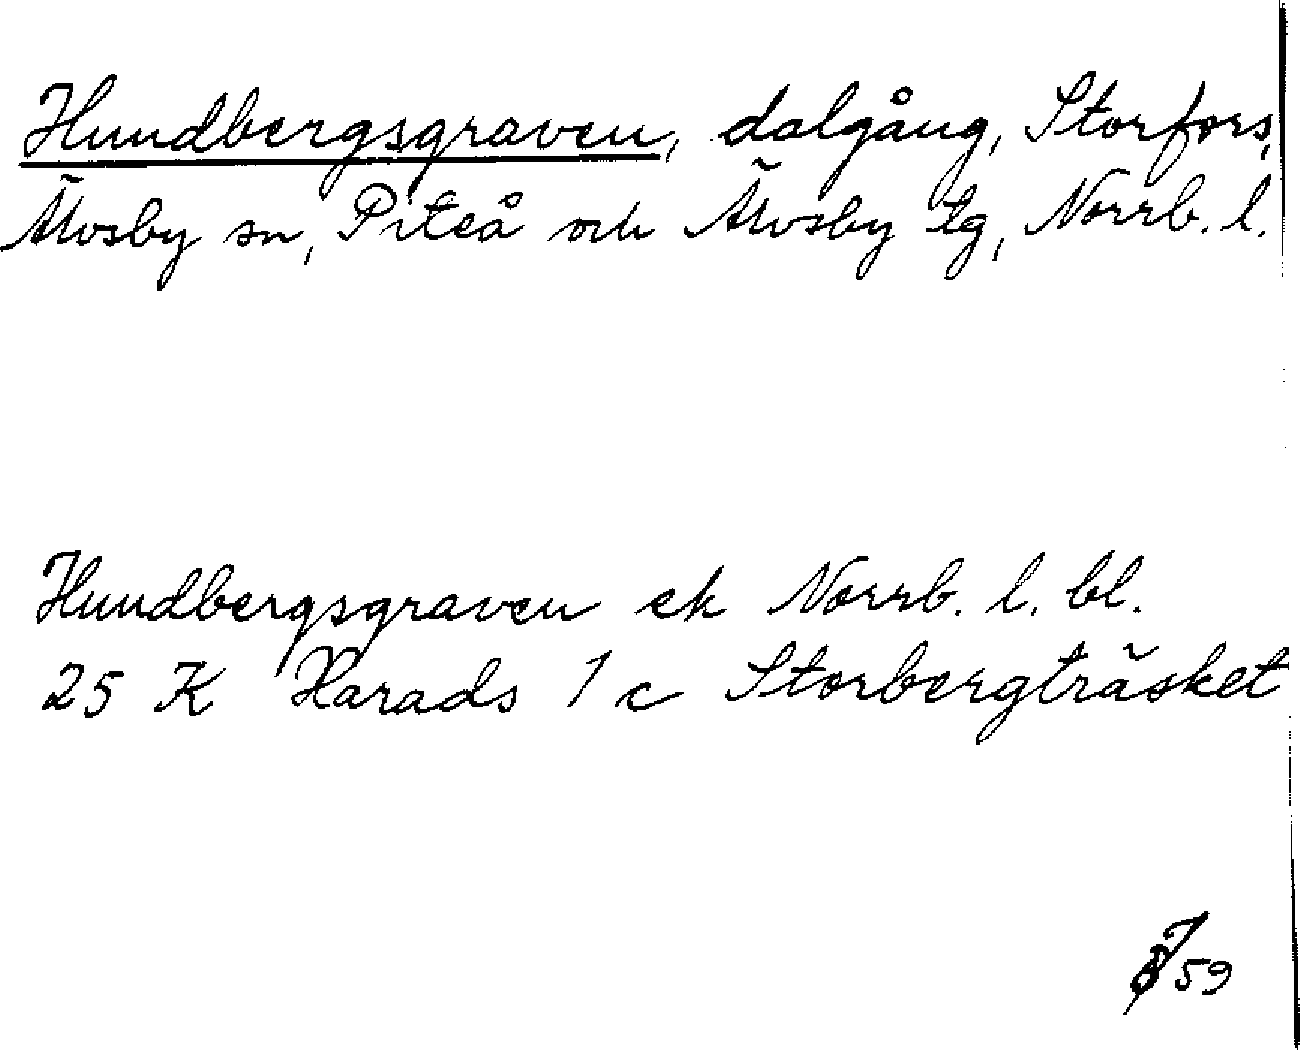 Hundbergsgraven, dalgång, Storfors,
Älvsby sn, Piteå och Älvsby tg, Norrb. l.
Hundbergsgraven ek Norrb. l. bl.
25 K Harads 1 c Storbergträsket
59